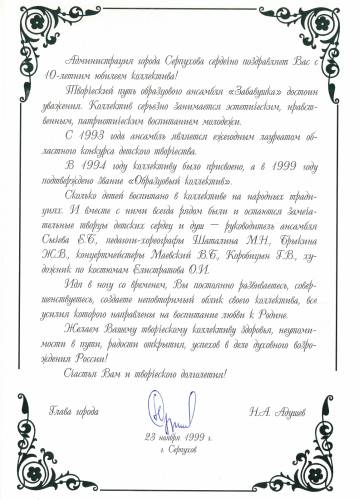 Администрация города Серпухова сердечно поздравляет Вас с
10-летним юбилеем коллектива!
Творческий путь образцового ансамбля «Забавушка» достоин
уважения. Коллектив серьёзно занимается эстетическим, нравст-
венным, патриотическим воспитанием молодежи.
С 1993 года ансамбль является ежегодным лауреатом об-
ластного конкурса детского творчества.
В 1994 году коллективу было присвоено, а в 1999 году
подтверждено звание «Образцовый коллектив».
Сколько детей воспитано в коллективе на народных тради-
циях. И вместе с ними всегда рядом были и остаются замеча-
тельные творцы детских сердец и душ — руководитель ансамбля
Сычева Е.Б., педагоги-хореографы Шаталина М.Н., Брыкина
Ж.В., концертмейстеры Маевский В.Б., Коробицын Г.В., ху-
дожник по костюмам Елистратова О.И.
Идя в ногу со временем, Вы постоянно развиваетесь, совер-
шенствуетесь, создаете неповторимый облик своего коллектива, все
усилия которого направлены на воспитание любви к Родине.
Желаем Вашему творческому коллективу здоровья, неутоми-
мости в пути, радости открытия, успехов в деле духовного возро-
ждения России!
Счастья Вам и творческого долголетия!
Глава города Н.А. Адушев
23 ноября 1999 г.
г. Серпухов